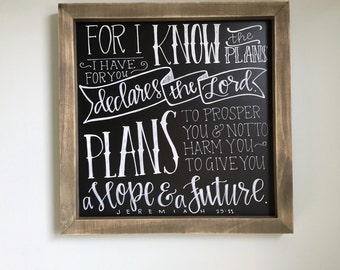 FOR I KNOW the PLANS
I HAVE FOR YOU
declares the Lord.
PLANS TO PROSPER
YOU & NOT TO
HARM YOU
TO GIVE YOU
a Hope & a Future.
JEREMIAH 29:11